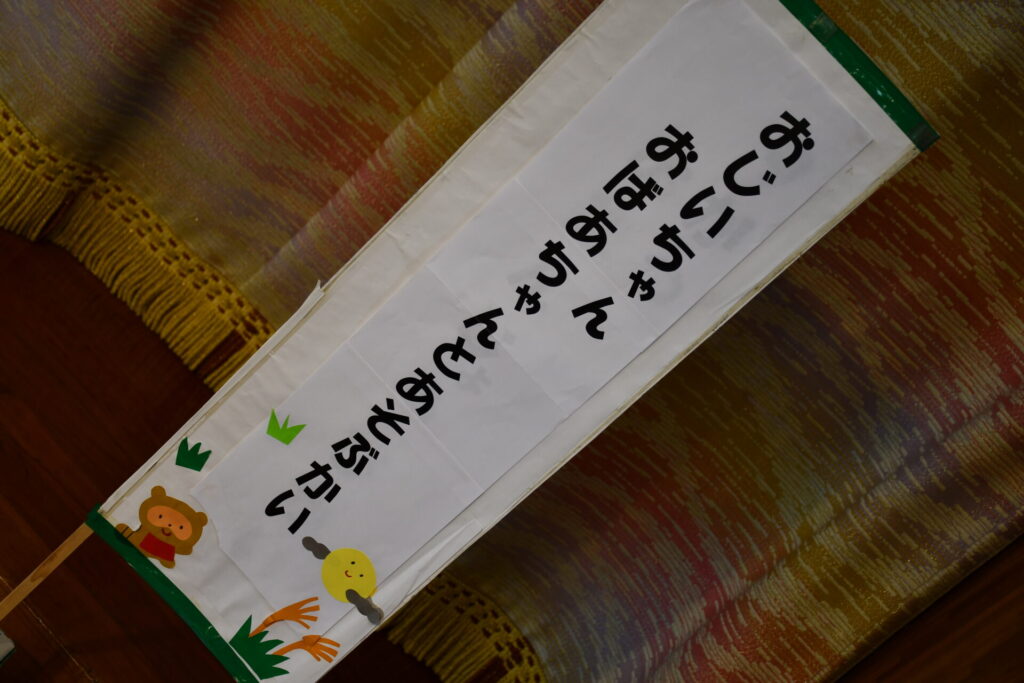 おじいちゃん
おばあちゃんとあそぶかい